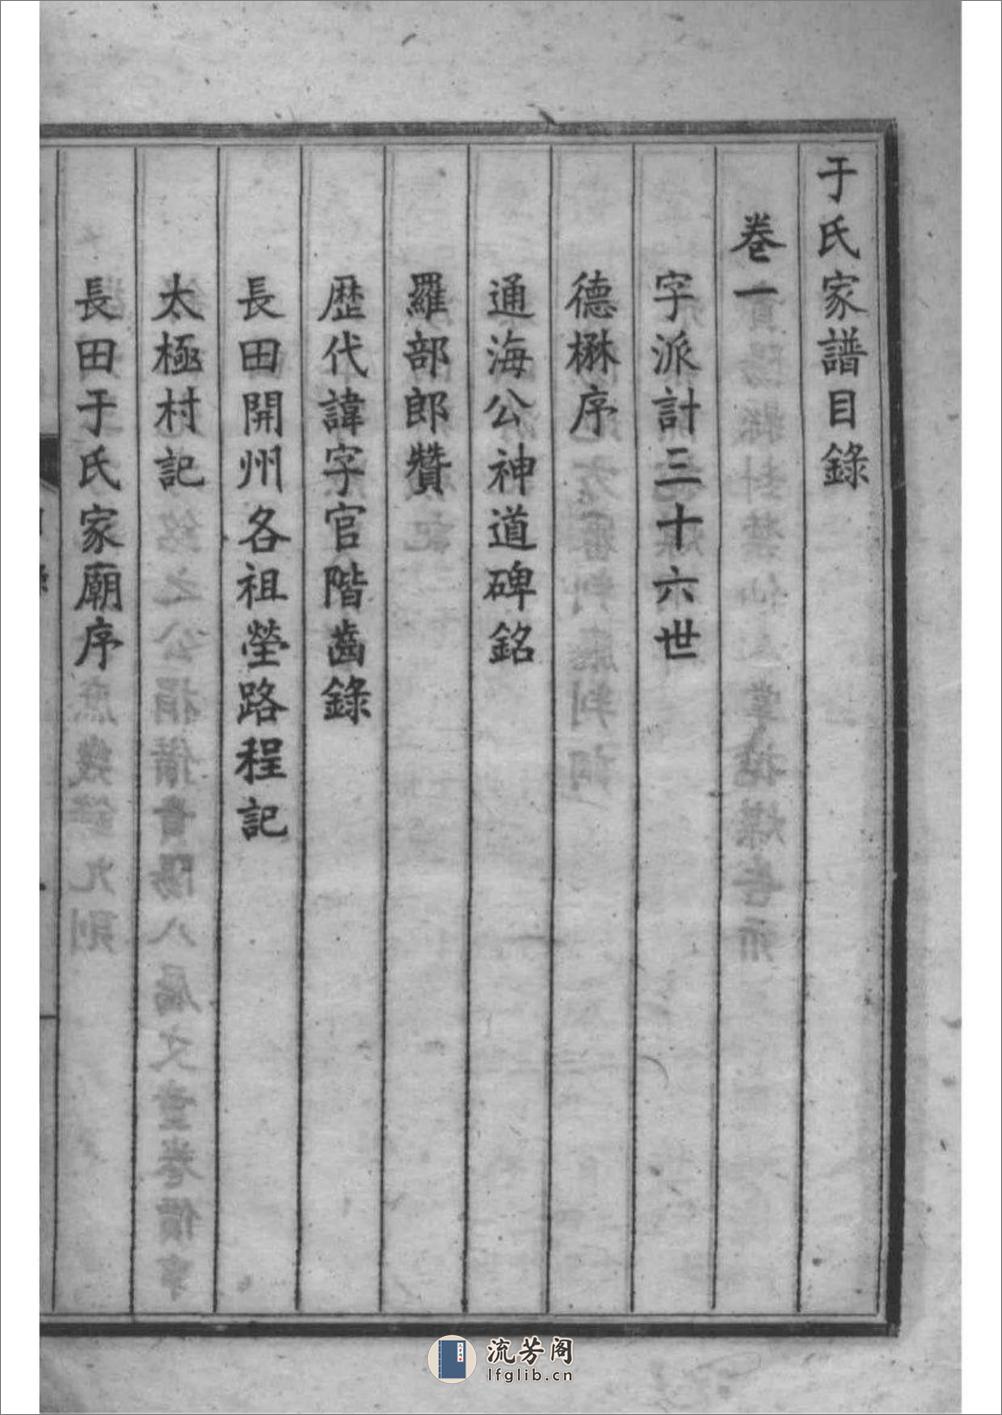 于氏家譜目錄
卷一
字派計三十六世
德楙序
通海公神道碑銘
羅部郎贊
歴代諱字官階齒錄
長田開州各祖塋路程記
太極村記
長田于氏家廟序
流芳阁
lfglib.cn